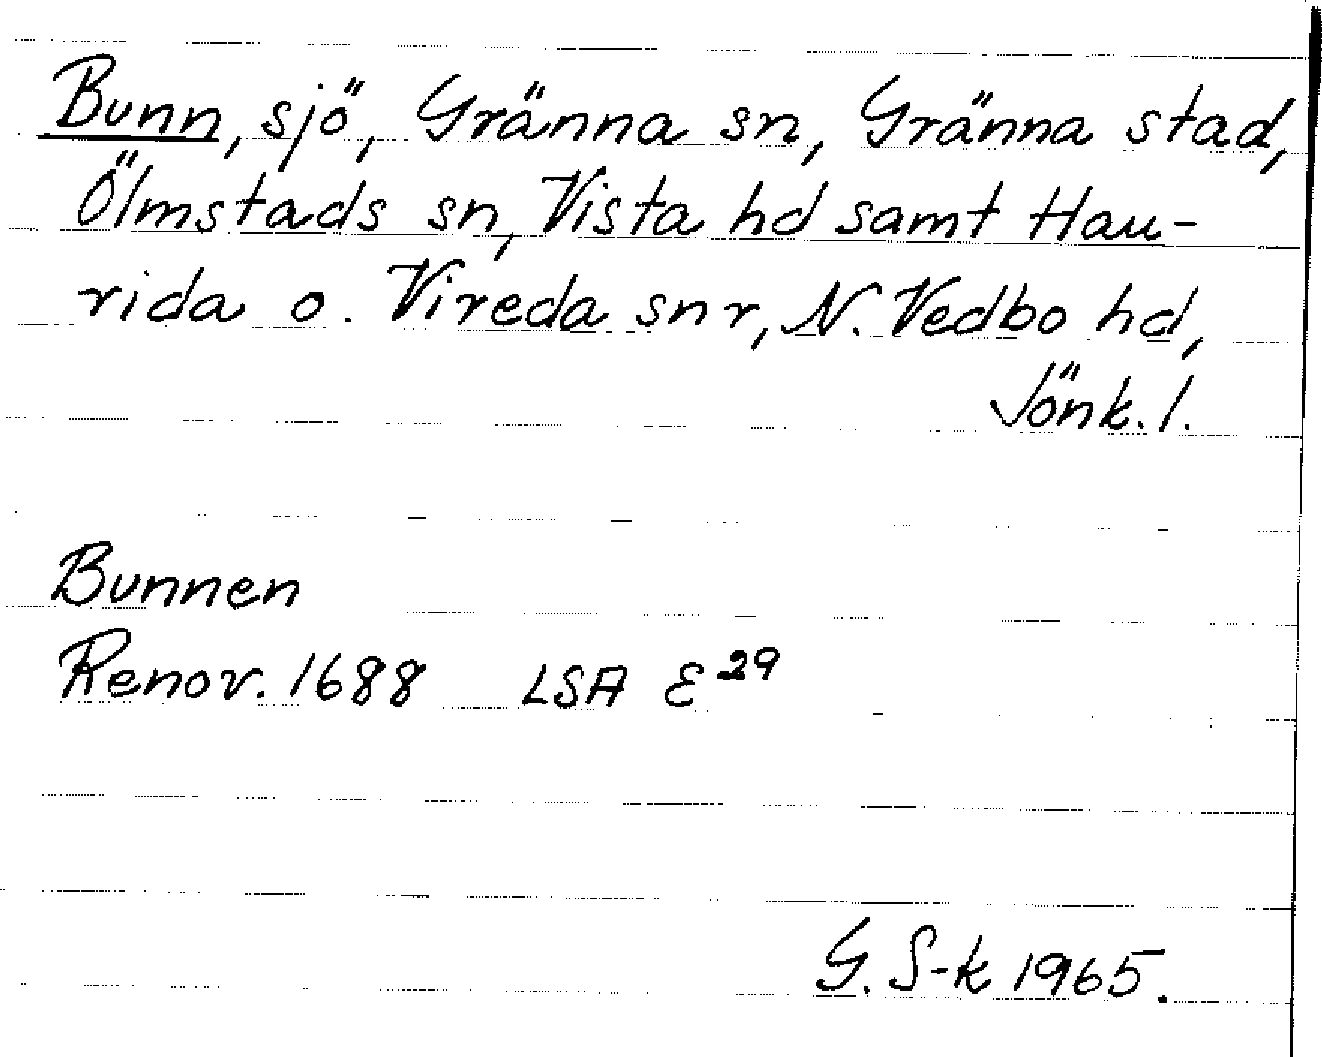 Bunn, sjö, Gränna sn, Gränna stad,
Ölmstads sn, Vista hd samt Hau-
rida o. Vireda snr, N. Vedbo hd,
Jönk. l.
Bunnen
Renov. 1688 LSA E 29
G. S-k 1965.